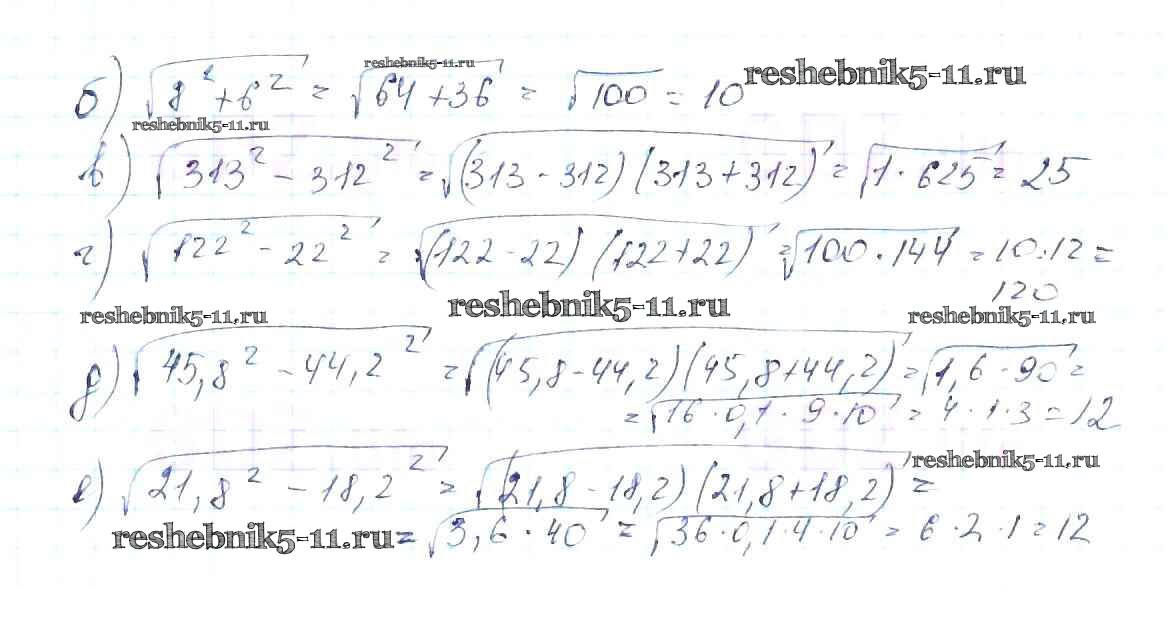 reshebnik5-11.ru
б) √(8² + 6²) = √(64 + 36) = √100 = 10
reshebnik5-11.ru
reshebnik5-11.ru
в) √(313² - 312²) = √((313 - 312)(313 + 312)) = √(1 · 625) = 25
г) √(122² - 22²) = √((122 - 22)(122 + 22)) = √(100 · 144) = 10 · 12 =
120
reshebnik5-11.ru reshebnik5-11.ru reshebnik5-11.ru
д) √(45,8² - 44,2²) = √((45,8 - 44,2)(45,8 + 44,2)) = √(1,6 · 90) =
= √(16 · 0,1 · 9 · 10) = 4 · 1 · 3 = 12
reshebnik5-11.ru
е) √(21,8² - 18,2²) = √((21,8 - 18,2)(21,8 + 18,2)) =
reshebnik5-11.ru
= √(3,6 · 40) = √(36 · 0,1 · 4 · 10) = 6 · 2 · 1 = 12